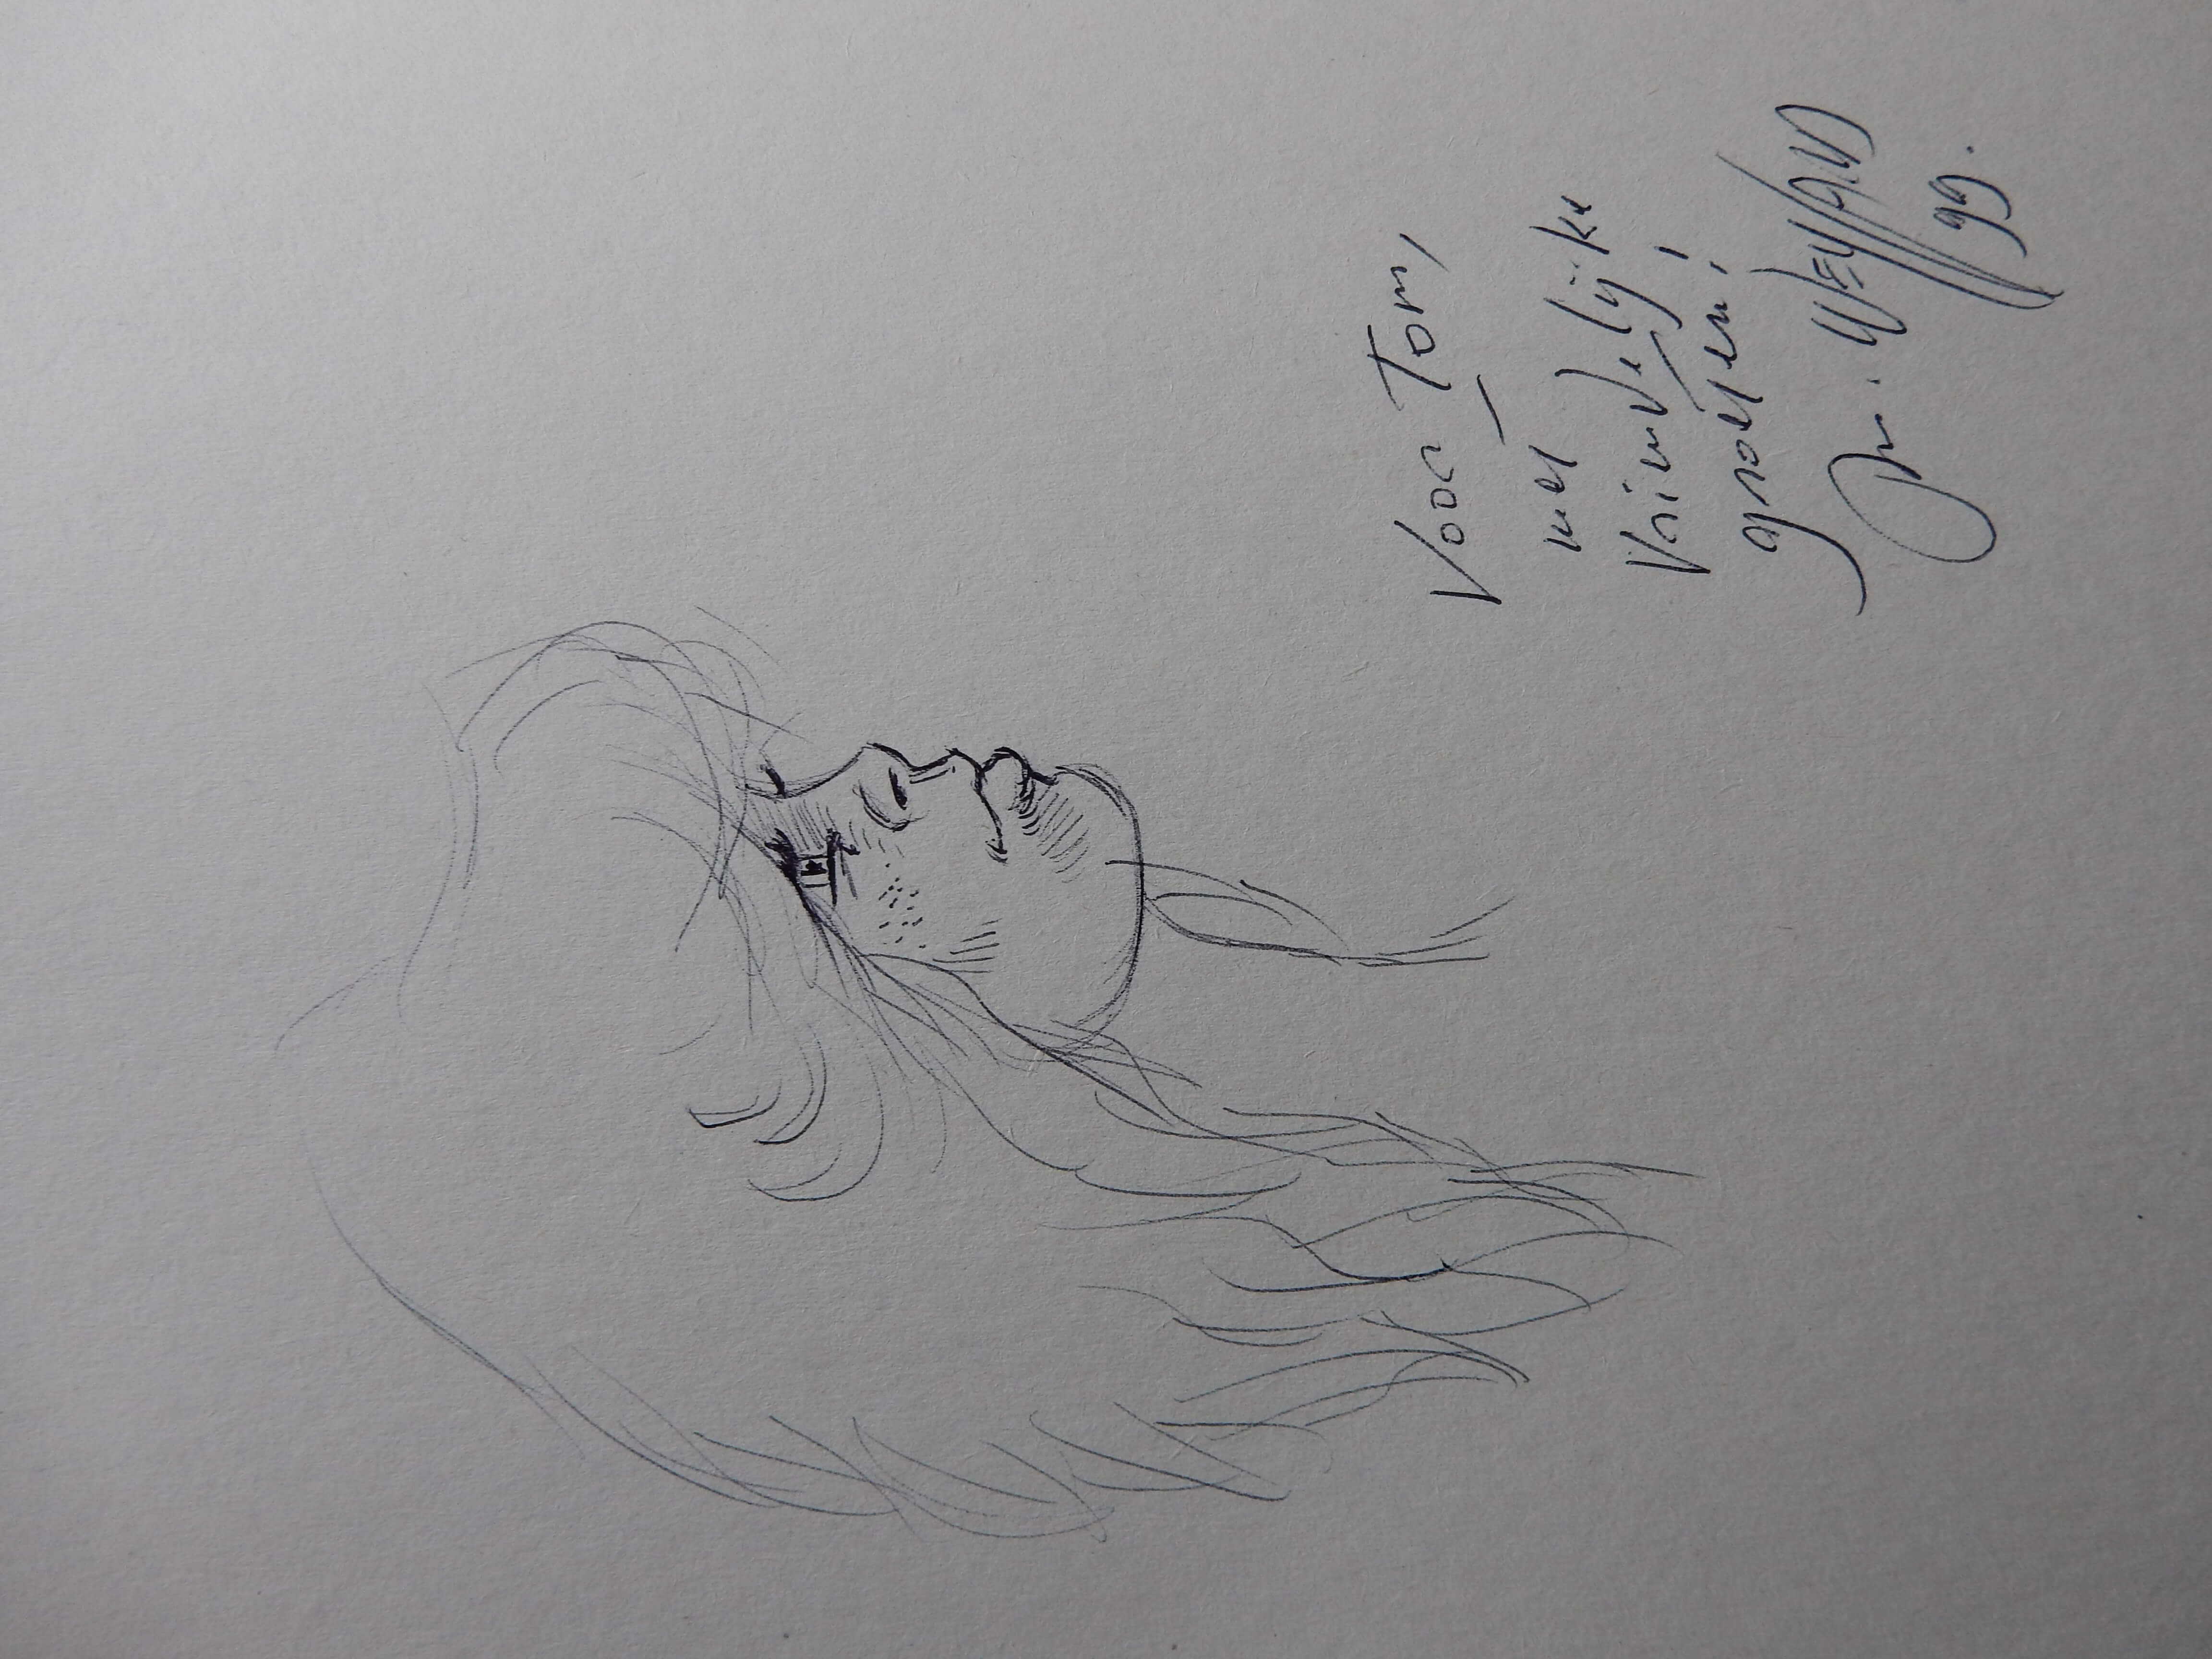 Voor Tom,
met
vriendelijke
groeten!
WEYLAND
99.